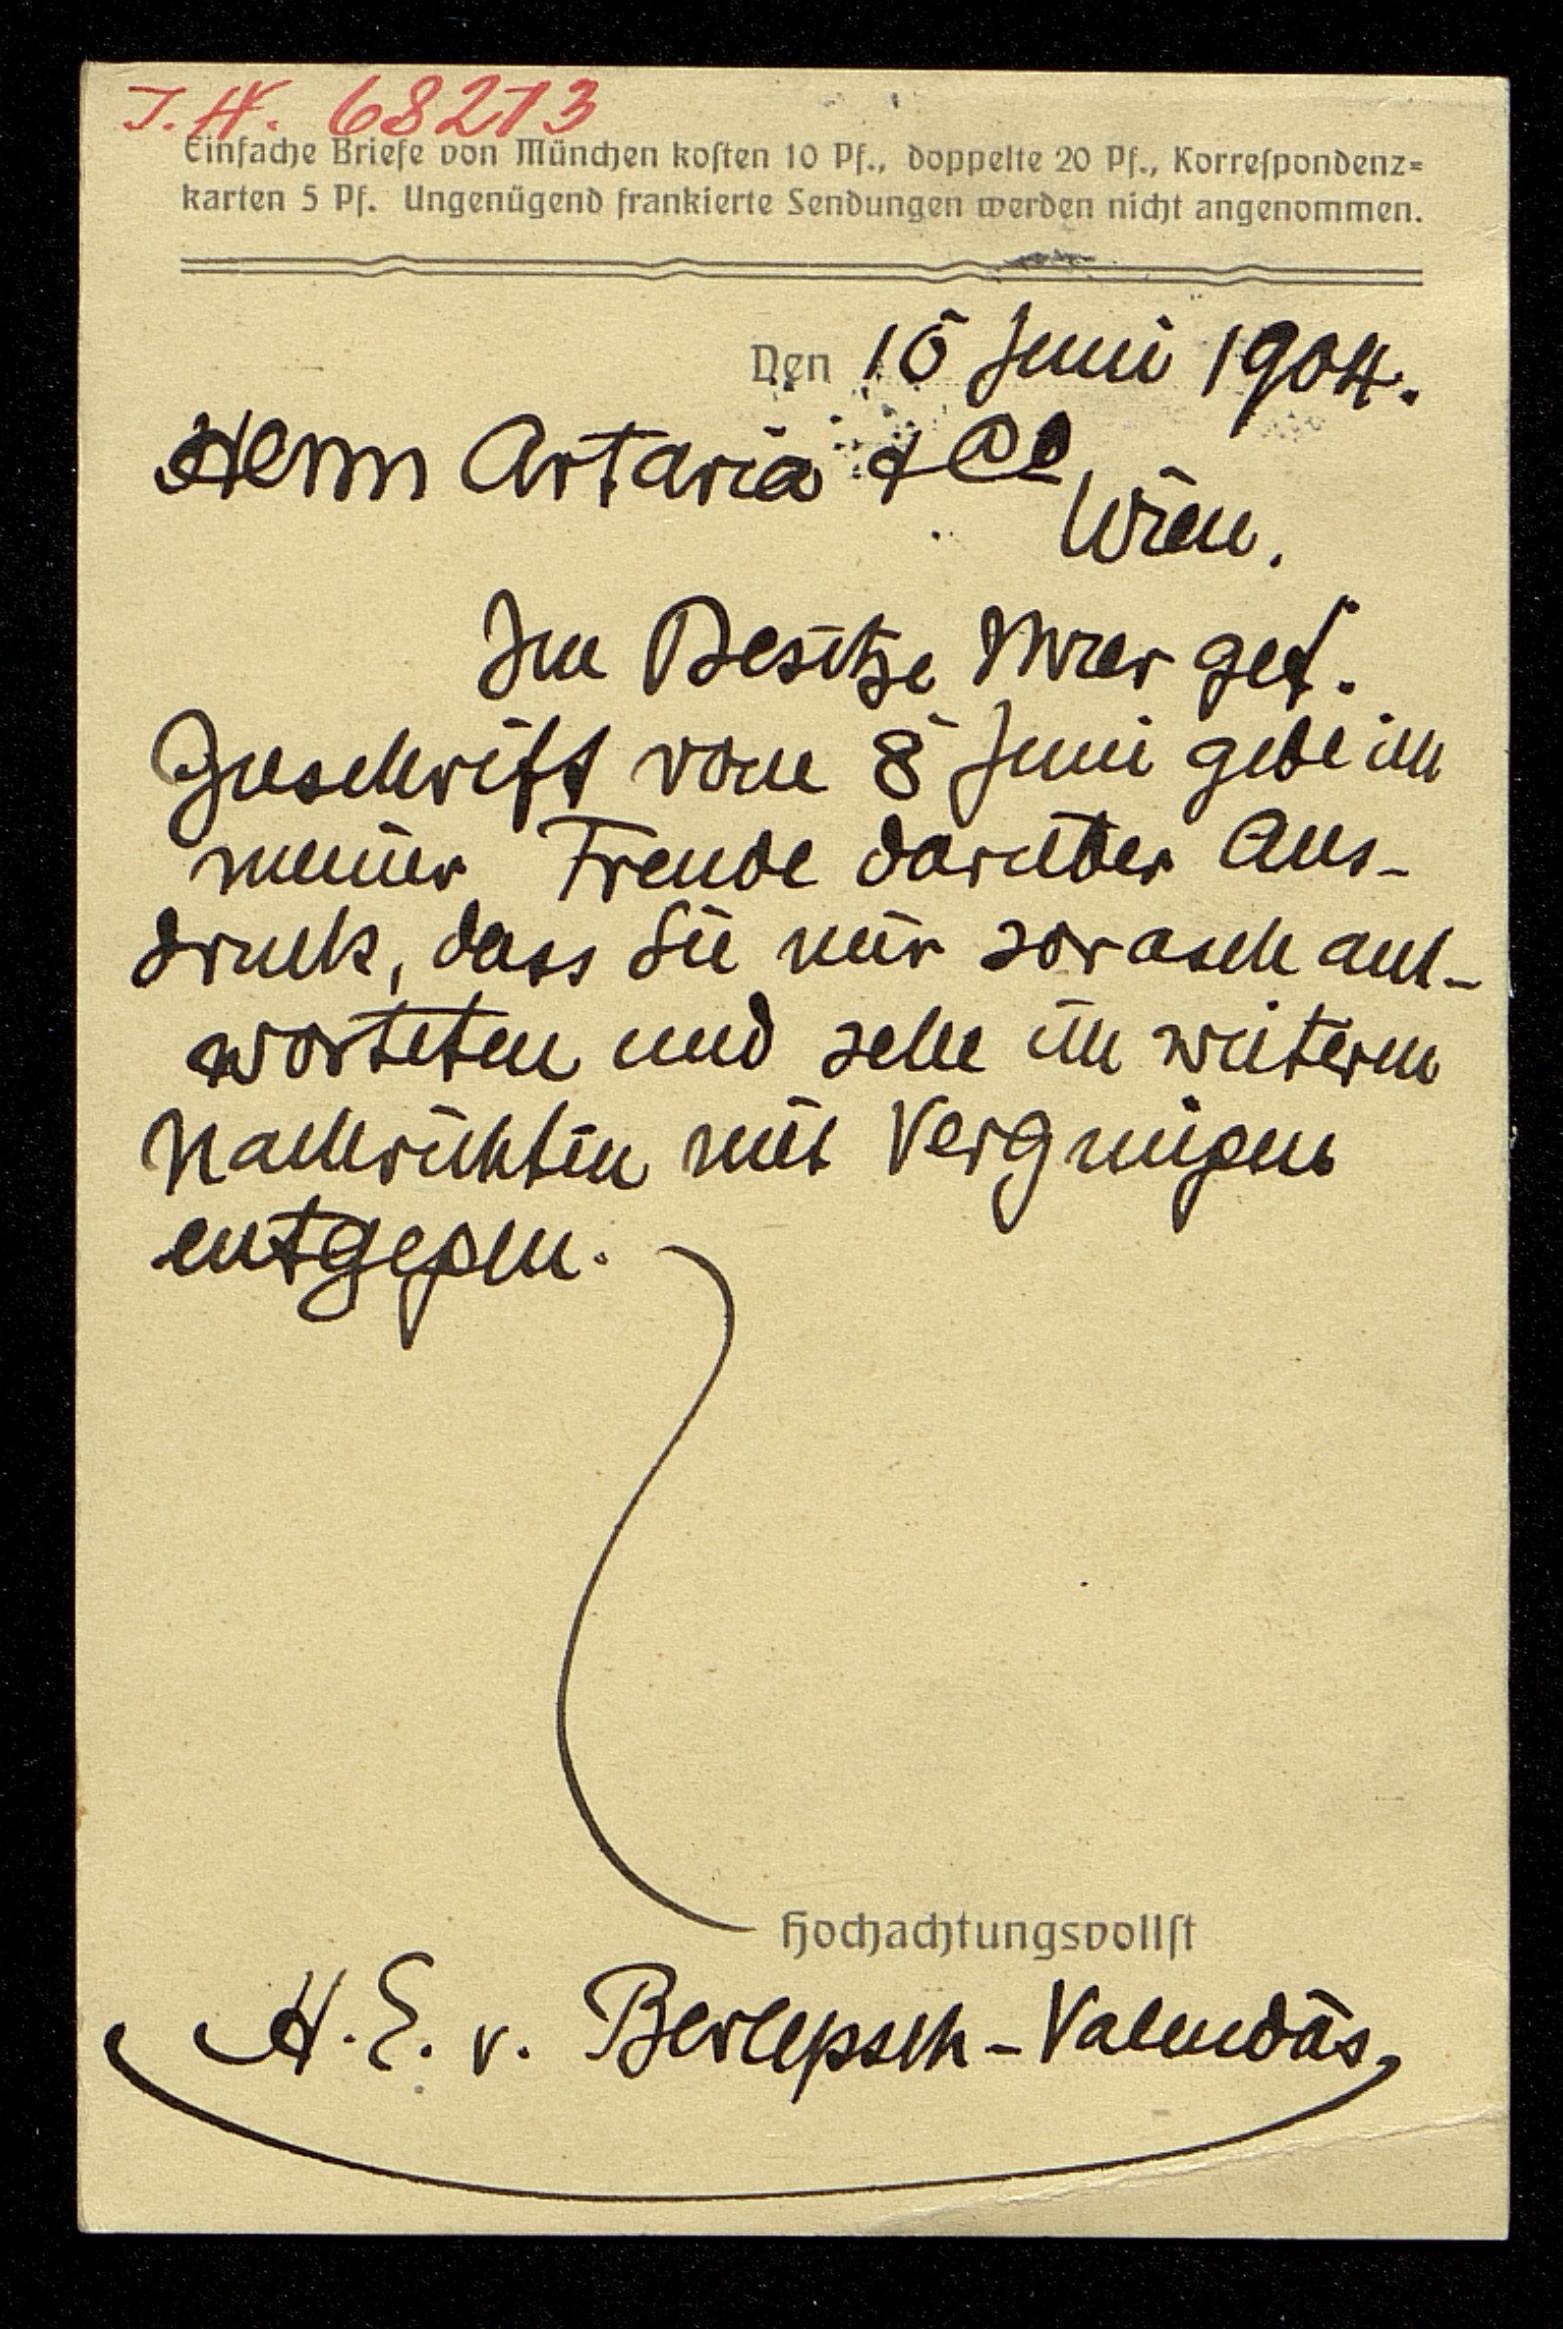 J.N. 68213
Einfache Briefe von München kosten 10 Pf., doppelte 20 Pf., Korrespondenz=
karten 5 Pf. Ungenügend frankierte Sendungen werden nicht angenommen.
Den 10 Juni 1904.
Herrn Artaria & Co
Wien.
Im Besitze Ihrer gef.
Zuschrift vom 8 Juni gebe ich
meiner Freude darüber Aus-
druck, dass Sie mir so rasch ant-
worteten und sehe ich weitern
Nachrichten mit Vergnügen
entgegen.
Hochachtungsvollst
H. E. v. Berlepsch-Valendas